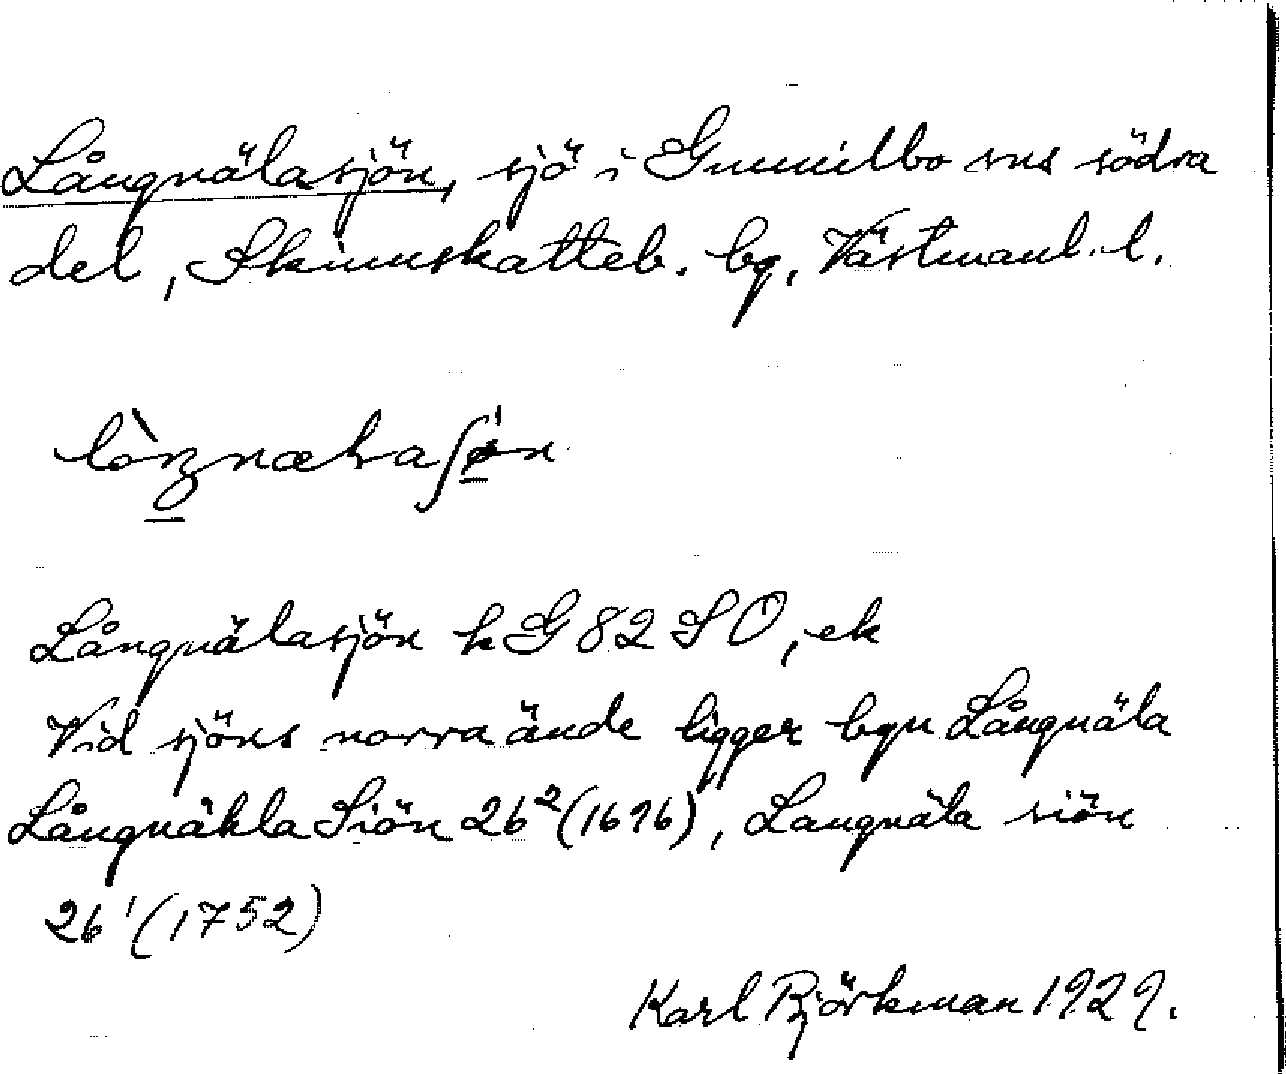 Långnälasjön, sjö i Gunnilbo sns södra
del, Skinnskatteb. bg, Västmanl. l.
Långnälasjön k G 82 SO, ek
Vid sjöns norra ände ligger byn Långnäla
Långnähla Siön 26² (1696), Langnäla siön
26¹ (1752)
Karl Björkman 1929.